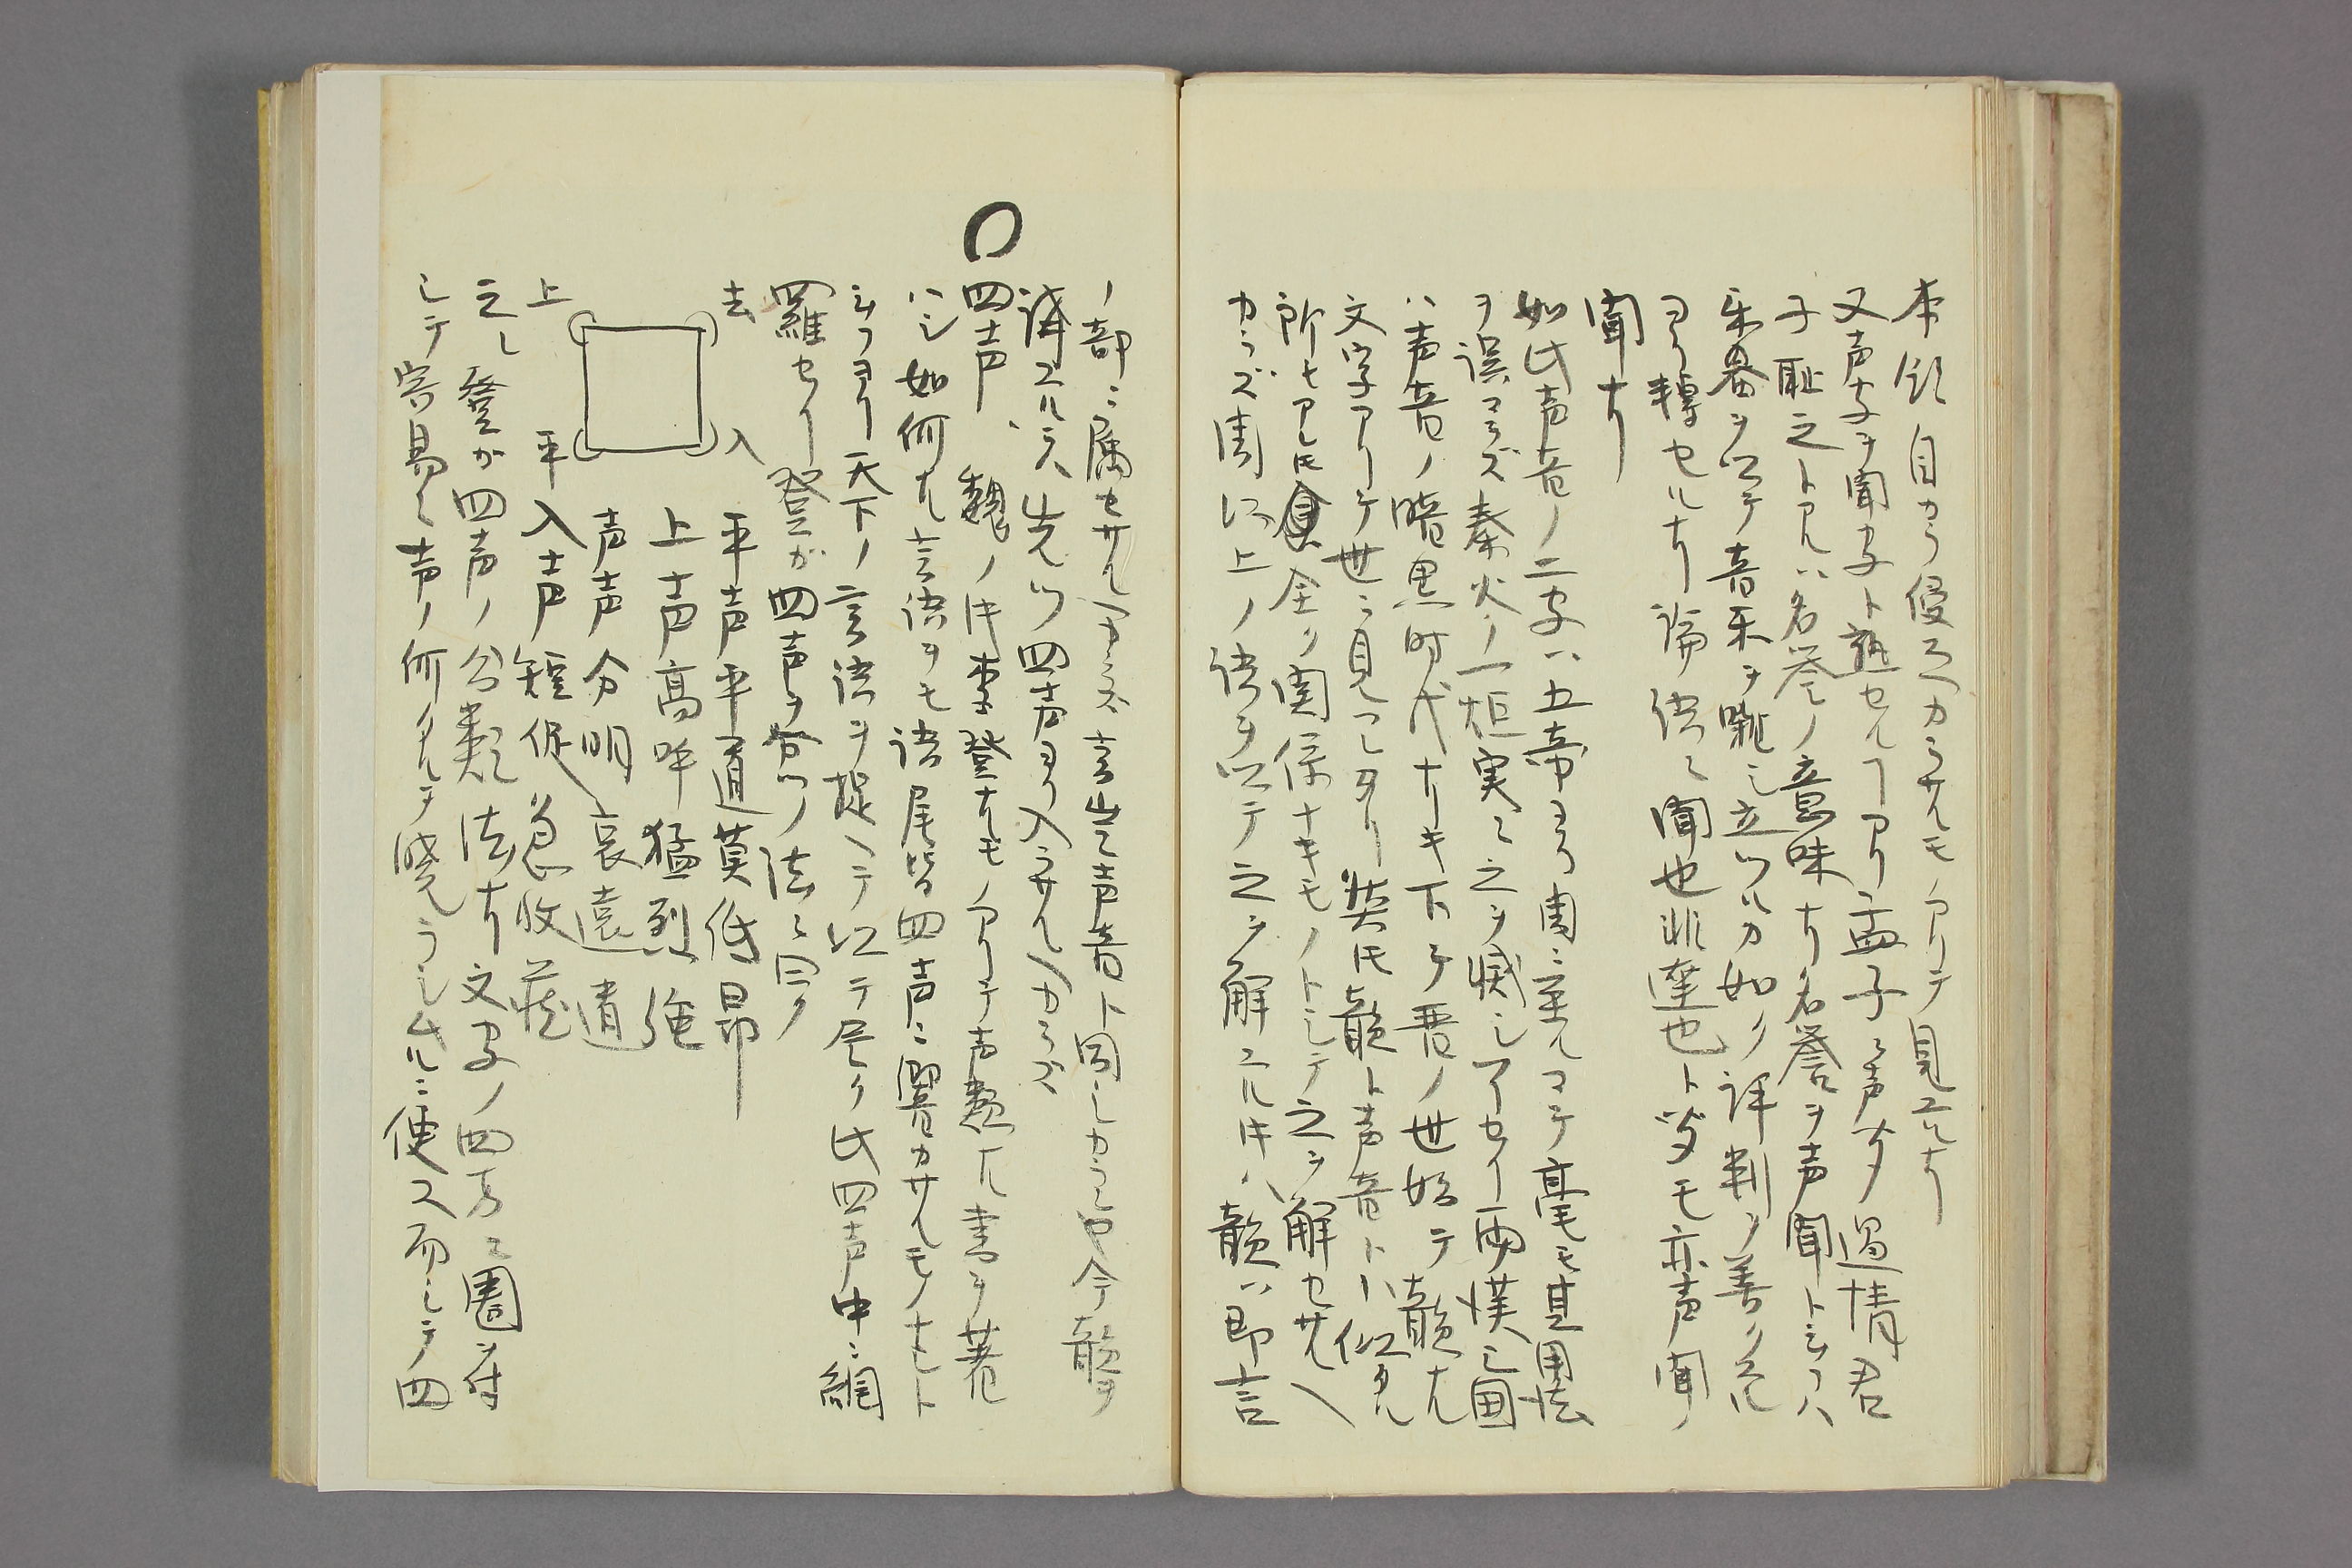 本領自カラ侵スベカラサルモノアリテ見エルナリ
又声字ヲ聞字ト熟セルアリ孟子ニ声聞過情君
子恥之トアルハ名誉ノ意味ナリ名誉ヲ声聞トシフハ
楽器ヲ以テ音楽ヲ囃シ立ツルカ如ク評判ノ善ク
ヨリ轉セルナリ論語ニ聞也非達也ト モ亦声聞ノ
聞ナリ
如此声音ノ二字ハ五帝ヨリ周ニ至ルマテ毫モ其用法
ヲ誤マラズ秦火ノ一炬実ニ之ヲ滅シ了セリ両漢三国
ハ声音ノ暗黒時代ナリキ下テ晋ノ世始テ韻ナル
文字アリテ世ニ見ハレタリ然氏韻ト声音トハ似タル
所モアレ氏全ク関係ナキモノトシテ之ヲ解セサルヘ
カラズ周以上ノ語ヲ以テ之ヲ解エルキハ韻ハ即言
ノ部ニ属セサルヘカラズ言豈声音ト同シカランヤ今韻ヲ
講エルニハ先ツ四声ヨリ入ラサルヘカラズ
○四声 魏ノ時李登ナルモノアリテ声類ナル書ヲ著
ハシ如何ナル言語ヲモ語尾皆四声ニ響カサルモノナシト
シフヨリ天下ノ言語ヲ捉ヘテ以テ尽ク此四声中ニ網
羅セリ登ガ四声ヲ分ツノ法ニ曰ク
去 入 平声平道莫低昂
上声高呼猛烈強
声声分明哀遠道
上 平 入声短促急收蔵
之レ登ガ四声ノ分類法ナリ文字ノ四方ニ圏ヲ付
シテ容易ニ声ノ何タルヲ暁ラシムルニ便ス而シテ四